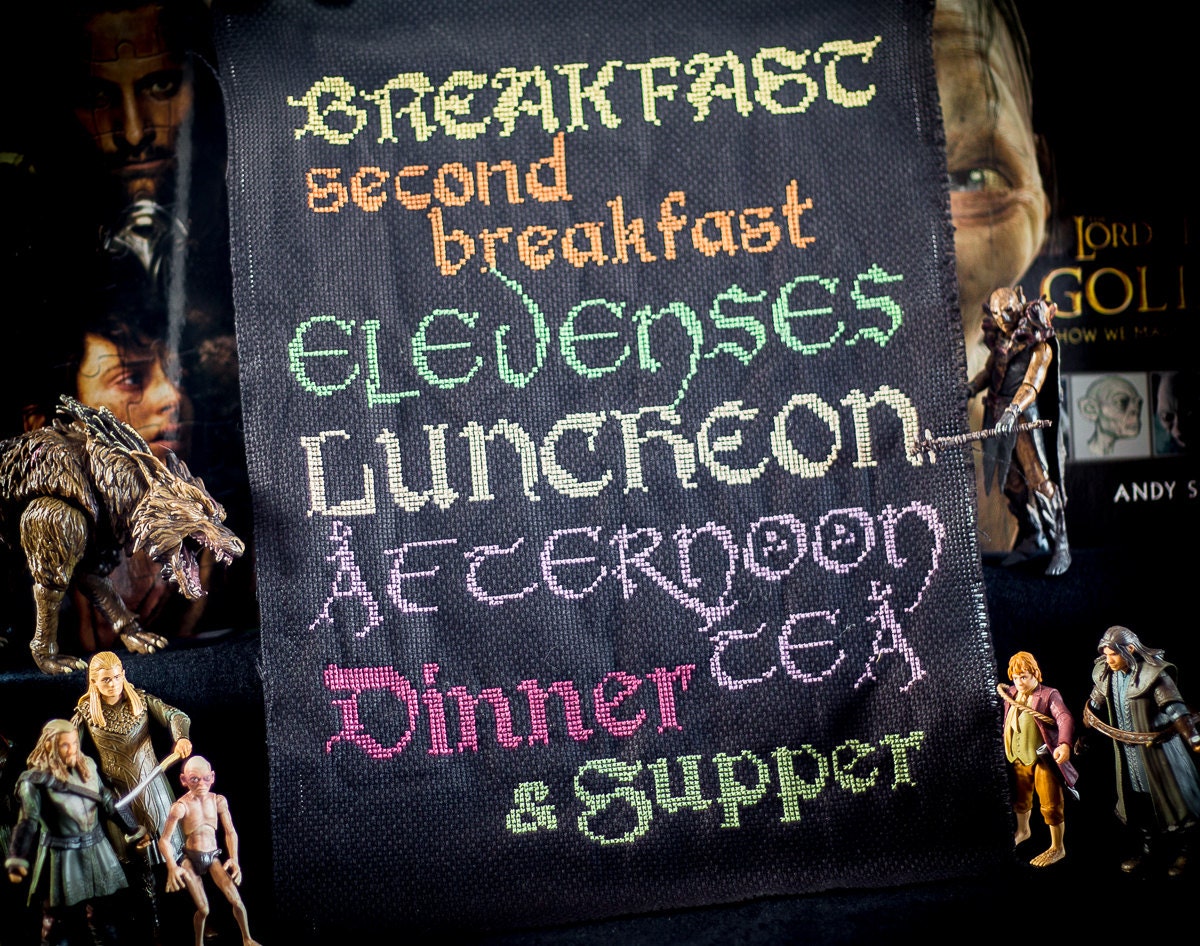 BREAKFAST
second
breakfast
ELEVENSES
LUNCHEON
AFTERNOON
TEA
Dinner
& Supper
THE
LORD
GOLL
HOW WE MA
ANDY S